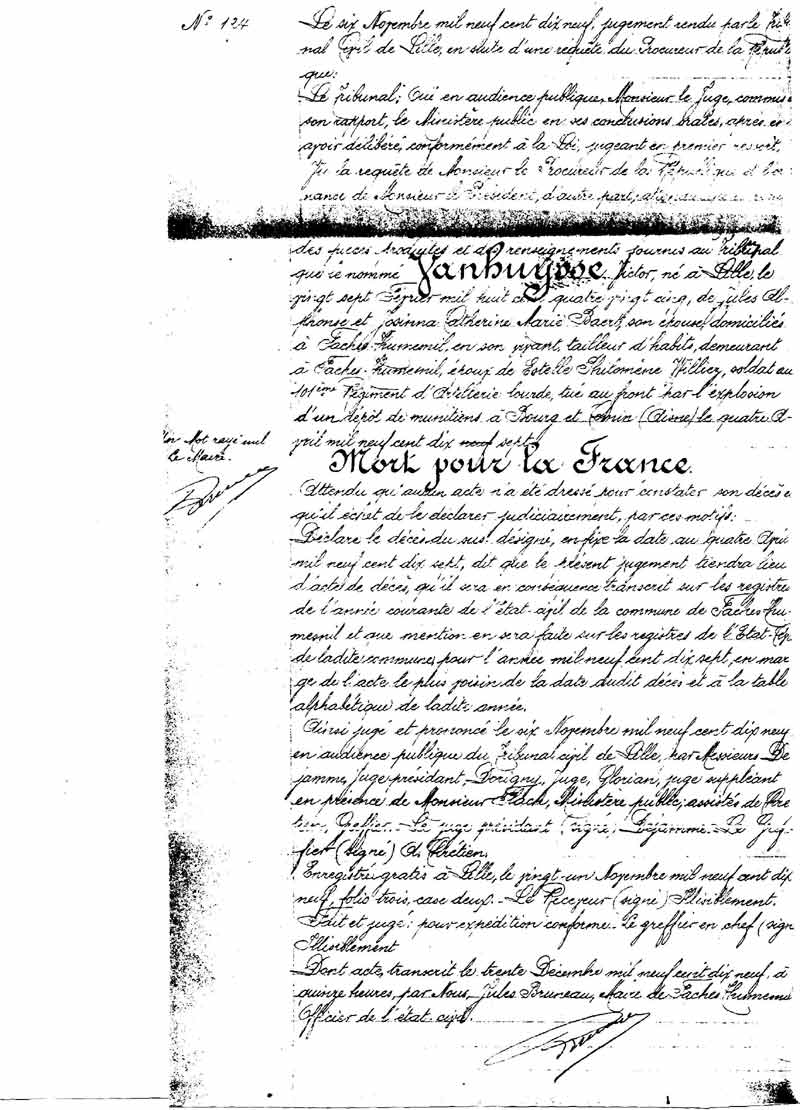 N° 124
Le six Novembre mil neuf cent dix neuf, jugement rendu par le Tribu
nal Civil de Lille, en suite d'une requête du Procureur de la Républi
que:
Le Tribunal; Oui en audience publique, Monsieur le Juge, commis e
son rapport, le Ministère public en ses conclusions orales, après en
avoir délibéré, conformément à la Loi, jugeant en premier ressort,
Vu la requête de Monsieur le Procureur de la République et l'or
nance de Monsieur le Président, d'autre part,
des pièces produites et des renseignements fournis au Tribunal
que le nommé Vanhuysse, Victor, né à Lille, le
vingt sept Février mil huit cent quatre vingt cinq, de Jules Al-
phonse et Josinna Catherine Marie Baert, son épouse, domiciliés
à Faches-Thumesnil, en son vivant, tailleur d'habit, demeurant
à Faches-Thumesnil, époux de Estelle Philomène Williez, soldat au
101ème Régiment d'Artillerie lourde, tué au front par l'explosion
d'un dépôt de munitions à Bourg et Comin (Aisne) le quatre A-
vril mil neuf cent dix neuf sept.
Un Mot rayé nul
Le Maire.
Mort pour la France.
Attendu qu'aucun acte n'a été dressé pour constater son décès e
qu'il échet de le déclarer judiciairement, par ces motifs:
Déclare le décès du sus désigné, en fixe la date au quatre Avril
mil neuf cent dix sept, dit que le présent jugement tiendra lieu
d'acte de décès, qu'il sera en conséquence transcrit sur les registres
de l'année courante de l'état-civil de la commune de Faches-Thu-
mesnil et que mention en sera faite sur les registres de l'Etat-Civ
de ladite commune, pour l'année mil neuf cent dix sept, en mar
ge de l'acte le plus voisin de la date dudit décès et à la table
alphabétique de ladite année.
Ainsi jugé et prononcé le six Novembre mil neuf cent dix neuf
en audience publique du Tribunal civil de Lille, par Messieurs De
jamme, Juge président, Dorigny, Juge, Glorian, juge suppléant
en présence de Monsieur Flach, Ministère public; assistés de Chré
tien, Greffier. Le juge président (signé) Dejamme. Le Gref-
fier (signé) A. Chrétien.
Enregistré gratis à Lille, le vingt-un Novembre mil neuf cent dix
neuf, folio trois, case deux. Le Receveur (signé) Illisiblement.
Edit et jugé: pour expédition conforme. Le greffier en chef (sign
Illisiblement
Dont acte, transcrit le trente Décembre mil neuf cent dix neuf, à
quinze heures, par Nous, Jules Bruneau, Maire de Faches Thumesni
Officier de l'état civil.